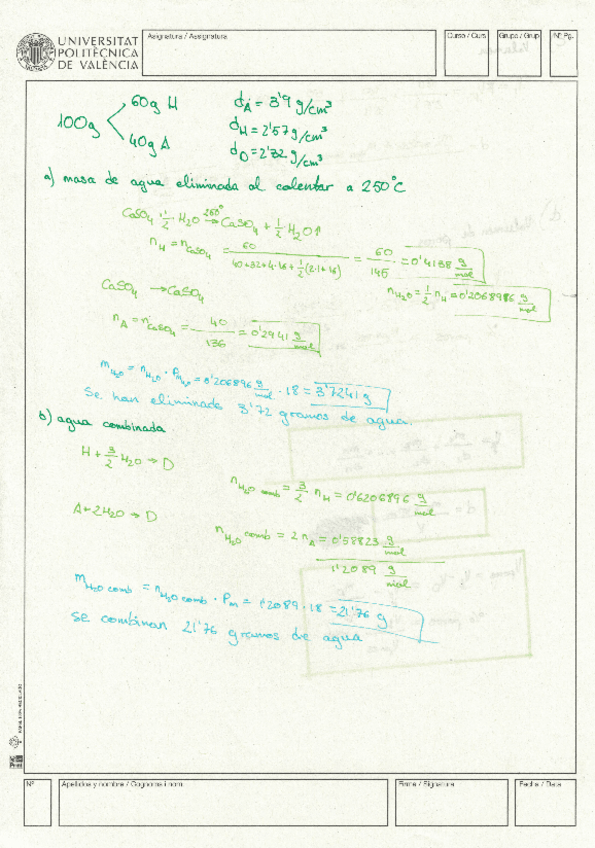 UNIVERSITAT
POLITÈCNICA
DE VALÈNCIA
Asignatura / Assignatura
Curso / Curs
Grupo / Grup
Nº Pg.
100g
60g H
40g A
dA = 3'9 g/cm³
dH = 2'57 g/cm³
dD = 2'32 g/cm³
a) masa de agua eliminada al calentar a 250°C
CaSO4 · 1/2 · H2O 250° → CaSO4 + 1/2 H2O ↑
nH = nCaSO4 = 60 / (40+32+4·16+1/2(2·1+16)) = 60/145 = 0'4138 g/mol
nH2O = 1/2 nH = 0'2068986 g/mol
CaSO4 → CaSO4
nA = nCaSO4 = 40/136 = 0'2941 g/mol
mH2O = nH2O · PmH2O = 0'206896 g/mol · 18 = 3'7241 g
Se han eliminado 3'72 gramos de agua.
b) agua combinada
H + 3/2 H2O → D
nH2O comb = 3/2 nH = 0'6206896 g/mol
A + 2H2O → D
nH2O comb = 2 nA = 0'58823 g/mol
1'2089 g/mol
mH2O comb = nH2O comb · Pm = 1'2089 · 18 = 21'76 g
Se combinan 21'76 gramos de agua
Nº
Apellidos y nombre / Cognoms i nom
Firma / Signatura
Fecha / Data